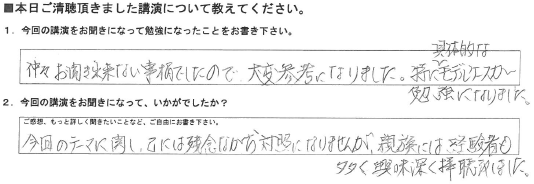 ■本日ご清聴頂きました講演について教えてください。
1．今回の講演をお聞きになって勉強になったことをお書き下さい。
具体的な
仲々お聞き出来ない事柄でしたので、大変参考になりました。特にモデルケースが
勉強になりました。
2．今回の講演をお聞きになって、いかがでしたか？
ご感想、もっと詳しく聞きたいことなど、ご自由にお書き下さい。
今回のテーマに関し、には残念ながら対照になりませんが、親族には経験者も
多く興味深く拝聴しました。